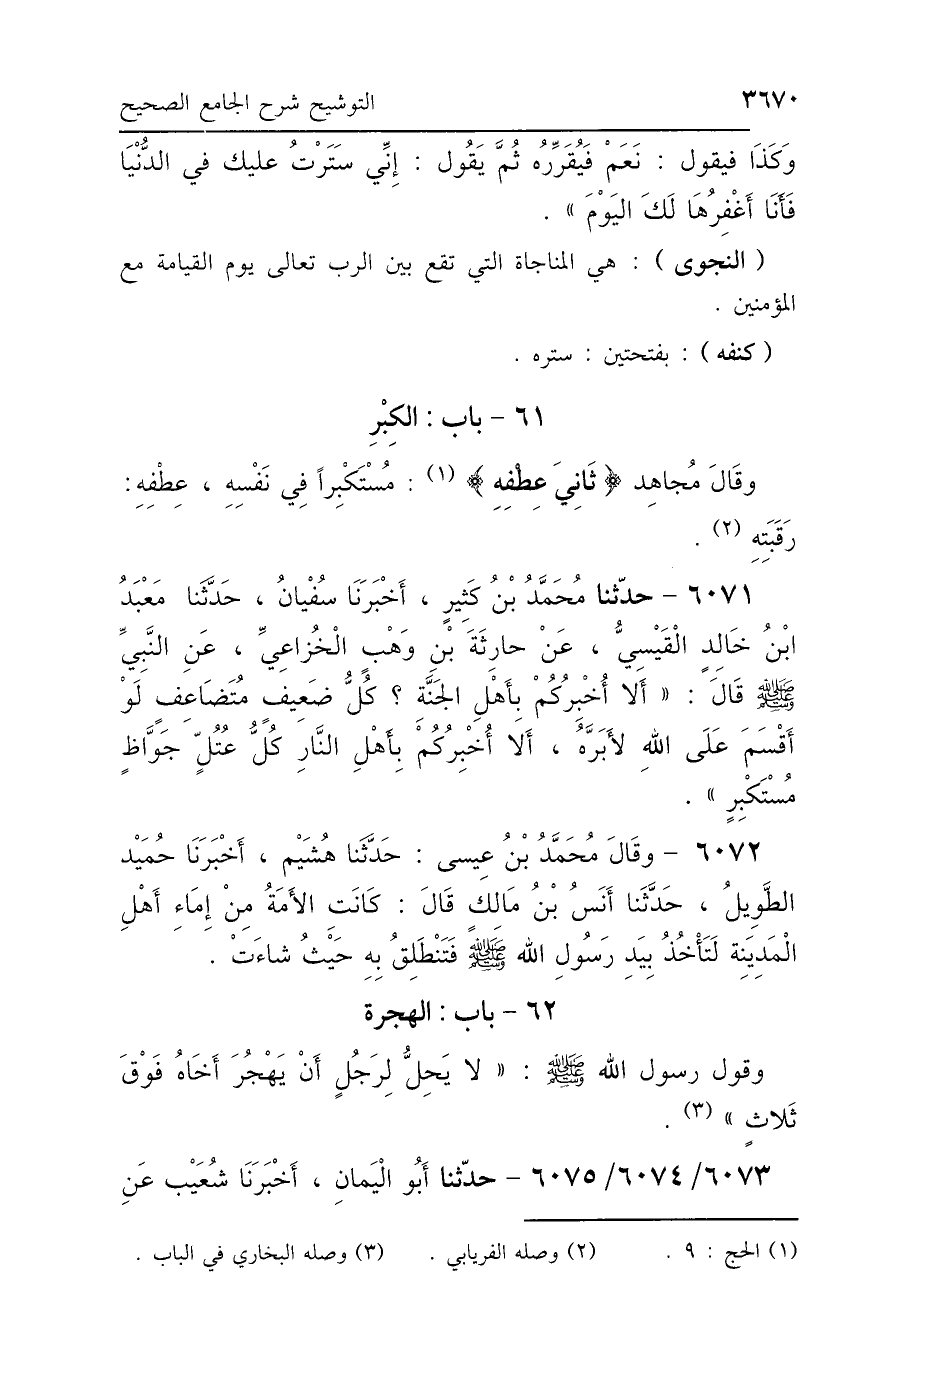 ٣٦٧٠
التوشيح شرح الجامع الصحيح
وَكَذَا فيقول : نَعَمْ فَيُقَرِّرُه ثُمَّ يَقُول : إِنِّي سَتَرْتُ عليك في الدُّنْيَا
فَأَنَا أَغْفِرُهَا لَكَ اليَوْمَ » .
( النجوى ) : هي المناجاة التي تقع بين الرب تعالى يوم القيامة مع
المؤمنين .
( كنفه ) : بفتحتين : ستره .
٦١ – باب : الكِبْرِ
وقَالَ مُجاهِد ﴿ ثَانِيَ عِطْفِهِ ﴾ (١) : مُسْتَكْبِراً فِي نَفْسِهِ ، عِطْفِهِ :
رَقَبَتِهِ (٢) .
٦٠٧١ – حدّثنا مُحَمَّدُ بْنُ كَثِيرٍ ، أَخْبَرَنَا سُفْيانُ ، حَدَّثَنا مَعْبَدُ
ابْنُ خَالِدٍ الْقَيْسِيُّ ، عَنْ حارِثَةَ بْنِ وَهْبٍ الْخُزاعِيِّ ، عَنِ النَّبِيِّ
ﷺ قَالَ : « أَلا أُخْبِرُكُمْ بِأَهْلِ الجَنَّةِ ؟ كُلُّ ضَعِيفٍ مُتَضَاعِفٍ لَوْ
أَقْسَمَ عَلَى اللهِ لأَبَرَّهُ ، أَلا أُخْبِرُكُمْ بِأَهْلِ النَّارِ كُلُّ عُتُلٍّ جَوَّاظٍ
مُسْتَكْبِرٍ » .
٦٠٧٢ – وقَالَ مُحَمَّدُ بْنُ عِيسى : حَدَّثَنا هُشَيْم ، أَخْبَرَنَا حُمَيْد
الطَّوِيلُ ، حَدَّثَنا أَنَسُ بْنُ مَالِكٍ قَالَ : كَانَتِ الأَمَةُ مِنْ إِمَاءِ أَهْلِ
الْمَدِينَةِ لَتَأْخُذُ بِيَدِ رَسُولِ اللهِ ﷺ فَتَنْطَلِقُ بِهِ حَيْثُ شاءَتْ .
٦٢ – باب : الهجرة
وقول رسول الله ﷺ : « لا يَحِلُّ لِرَجُلٍ أَنْ يَهْجُرَ أَخَاهُ فَوْقَ
ثَلاثٍ » (٣) .
٦٠٧٣/ ٦٠٧٤/ ٦٠٧٥ – حدّثنا أَبُو الْيَمانِ ، أَخْبَرَنَا شُعَيْب عَنِ
(١) الحج : ٩ . (٢) وصله الفريابي . (٣) وصله البخاري في الباب .